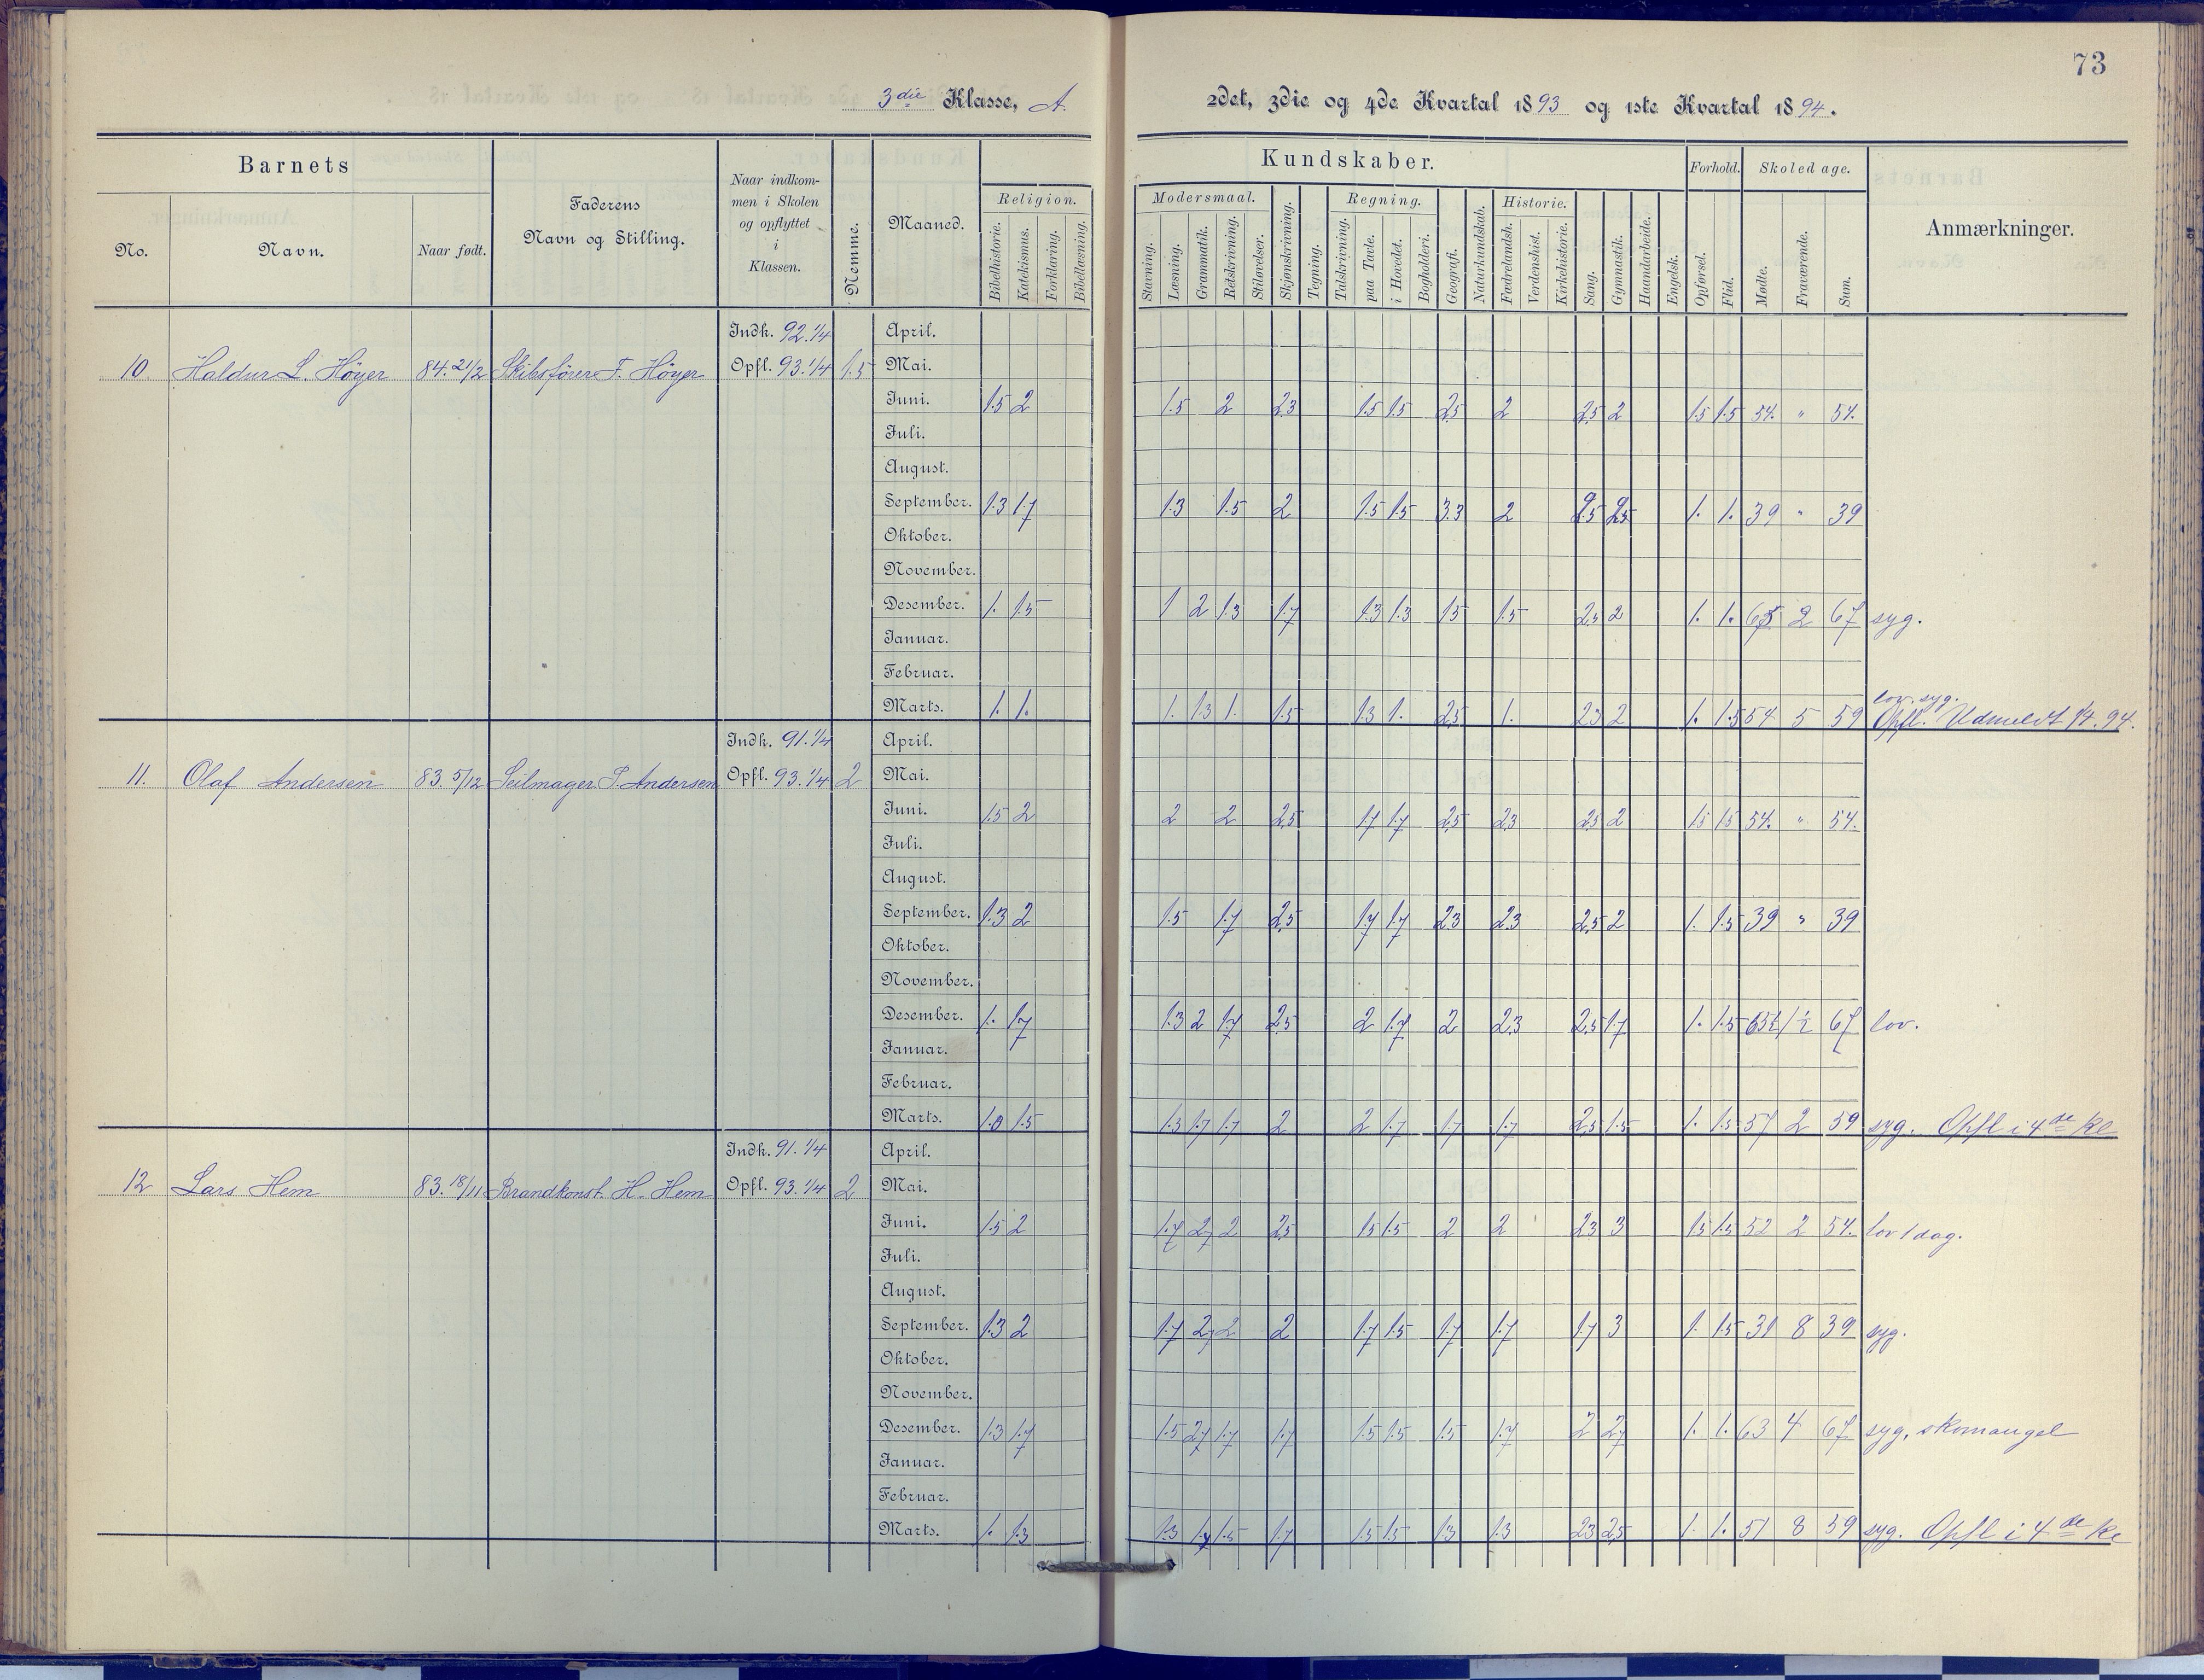 73
3die Klasse, A. 2det, 3die og 4de Kvartal 1893 og 1ste Kvartal 1894.
Barnets Kundskaber. Forhold. Skoledage.
No. Navn. Naar født. Faderens Navn og Stilling. Naar indkommen i Skolen og opflyttet i Klassen. Nemme. Maaned. Religion. Modersmaal. Regning. Historie. Anmærkninger.
Bibelhistorie. Katekismus. Forklaring. Bibellæsning. Stavning. Læsning. Grammatik. Retskrivning. Stiløvelser. Skjønskrivning. Tegning. Talskrivning. paa Tavle. i Hovedet. Bogholderi. Geografi. Naturkundskab. Fædrelandsh. Verdenshist. Kirkehistorie. Sang. Gymnastik. Haandarbeide. Engelsk. Opførsel. Flid. Mødte. Fraværende. Sum.
Indk. 92. 1/4 April.
10. Haldur L. Höyer 84. 21/2 Skibsfören F. Höyer Opfl. 93. 1/4 1.5 Mai.
Juni. 1.5 2 1.5 2 2.3 1.5 1.5 2.5 2 2.5 2 1.5 1.5 54. " 54.
Juli.
August.
September. 1.3 1.7 1.3 1.5 2 1.5 1.5 3.3 2 2.5 2.5 1. 1. 39 " 39
Oktober.
November.
Desember. 1. 1.5 1 2 1.3 1.7 1.3 1.3 1.5 1.5 2.5 2 1. 1. 65 2 67 syg.
Januar.
Februar.
lov. syg.
Marts. 1. 1. 1. 1.3 1. 1.5 1.3 1. 2.5 1. 2.3 2 1. 1.5 54 5 59 Opfl. Udmeldt 1/4. 94.
Indk. 91. 1/4 April.
11. Olaf Andersen 83. 5/12 Seilmager P. Andersen Opfl. 93. 1/4 2 Mai.
Juni. 1.5 2 2 2 2.5 1.7 1.7 2.5 2.3 2.5 2 1.5 1.5 54. " 54.
Juli.
August.
September. 1.3 2 1.5 1.7 2.5 1.7 1.7 2.3 2.3 2.5 2 1. 1.5 39 " 39
Oktober.
November.
Desember. 1. 1.7 1.3 2 1.7 2.5 2 1.7 2 2.3 2.5 1.7 1. 1.5 65½ 1½ 67 lov.
Januar.
Februar.
Marts. 1.0 1.5 1.3 1.7 1.7 2 2 1.7 1.7 1.7 2.5 1.5 1. 1.5 57 2 59 syg. Opfl i 4de Kl
Indk. 91. 1/4 April.
12 Lars Hem 83. 18/11 Brandkonst. H. Hem Opfl. 93. 1/4 2 Mai.
Juni. 1.5 2 1.7 2.7 2 2.5 1.5 1.5 2 2 2.3 3 1.5 1.5 52 2 54. lov 1 dag.
Juli.
August.
September. 1.3 2 1.7 2.7 2 2 1.7 1.5 1.7 1.7 1.7 3 1. 1.5 31 8 39 syg.
Oktober.
November.
Desember. 1.3 1.7 1.5 2.7 1.7 1.7 1.5 1.5 1.5 1.7 2 2.7 1. 1. 63 4 67 syg. skomangel
Januar.
Februar.
Marts. 1. 1.3 1.3 1.7 1.5 1.7 1.5 1.5 1.3 1.3 2.3 2.5 1. 1. 51 8 59 syg. Opfl i 4de Kl